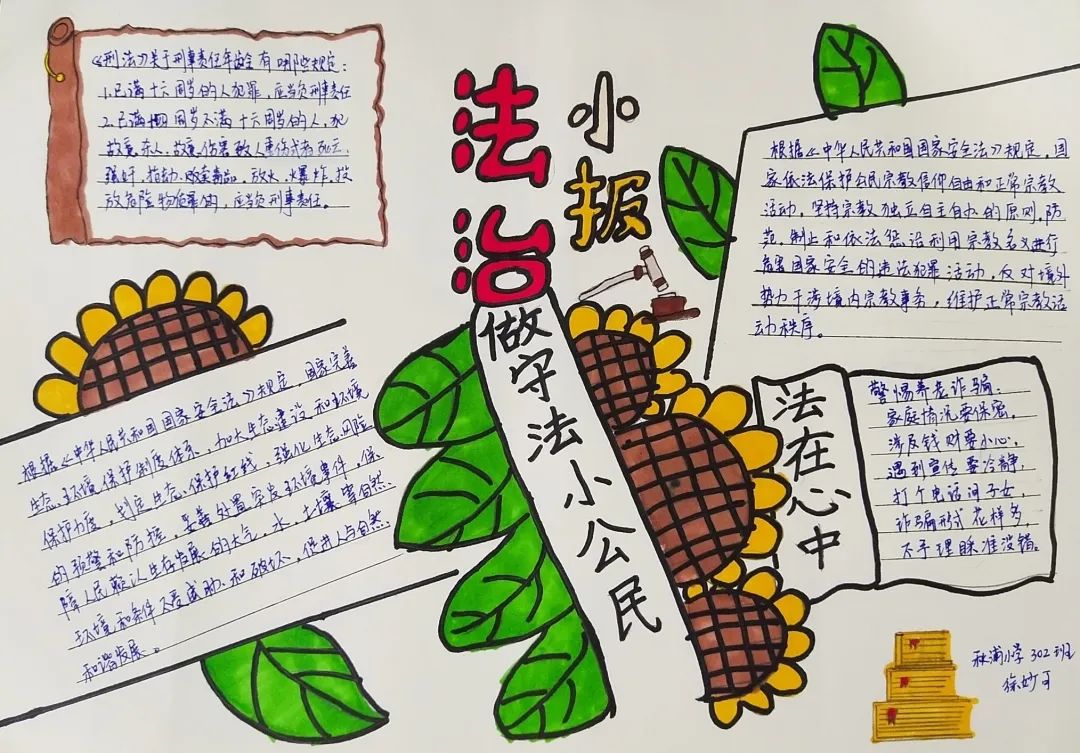 《刑法》关于刑事责任年龄有哪些规定：
1.已满十六周岁的人犯罪，应当负刑事责任
2.已满周岁不满十六周岁的人，犯
故意杀人、故意伤害致人重伤或者死亡、
强奸、抢劫、贩卖毒品、放火、爆炸、投
放危险物质罪的，应当负刑事责任。
法治
小报
做守法小公民
根据《中华人民共和国国家安全法》规定，国
家依法保护公民宗教信仰自由和正常宗教
活动，坚持宗教独立自主自办的原则，防
范、制止和依法惩治利用宗教名义进行
危害国家安全的违法犯罪活动，反对境外
势力干涉境内宗教事务，维护正常宗教活
动秩序。
根据《中华人民共和国国家安全法》规定，国家完善
生态环境保护制度体系，加大生态建设和环境
保护力度，划定生态保护红线，强化生态风险
的预警和防控，妥善处置突发环境事件，保
障人民赖以生存发展的大气、水、土壤等自然
环境和条件不受威胁和破坏，促进人与自然
和谐发展。
法在心中
警惕养老诈骗
家庭情况要保密，
涉及钱财要小心，
遇到宣传要冷静，
打个电话问子女，
诈骗形式花样多，
不予理睬准没错。
秋浦小学302班
徐妙可